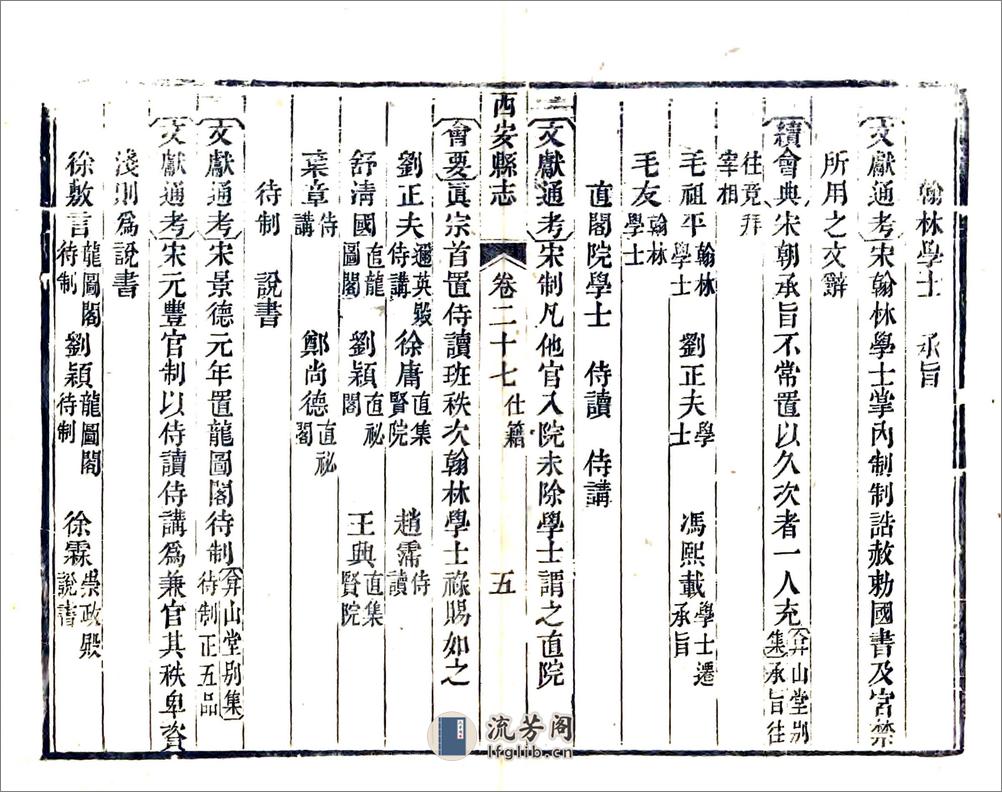 翰林學士 承旨
文獻通考宋翰林學士掌內制制誥赦勅國書及宮禁
所用之文辭
續會典宋朝承旨不常置以久次者一人充弇山堂別集承旨往
往竟拜宰相
毛祖平翰林學士 劉正夫學士 馮熙載學士遷承旨
毛友翰林學士
直閣院學士 侍讀 侍講
文獻通考宋制凡他官入院未除學士謂之直院
西安縣志 卷二十七 仕籍 五
會要真宗首置侍讀班秩次翰林學士祿賜如之
劉正夫邇英殿侍講 徐庸直集賢院 趙霈侍讀
舒清國直龍圖閣 劉頴直祕閣 王典直集賢院
葉章侍講 鄭尚德直祕閣
待制 說書
文獻通考宋景德元年置龍圖閣待制弇山堂別集待制正五品
文獻通考宋元豐官制以侍讀侍講為兼官其秩卑資
淺則為說書
徐敷言龍圖閣待制 劉頴龍圖閣待制 徐霖崇政殿說書
流芳阁
lfglib.cn